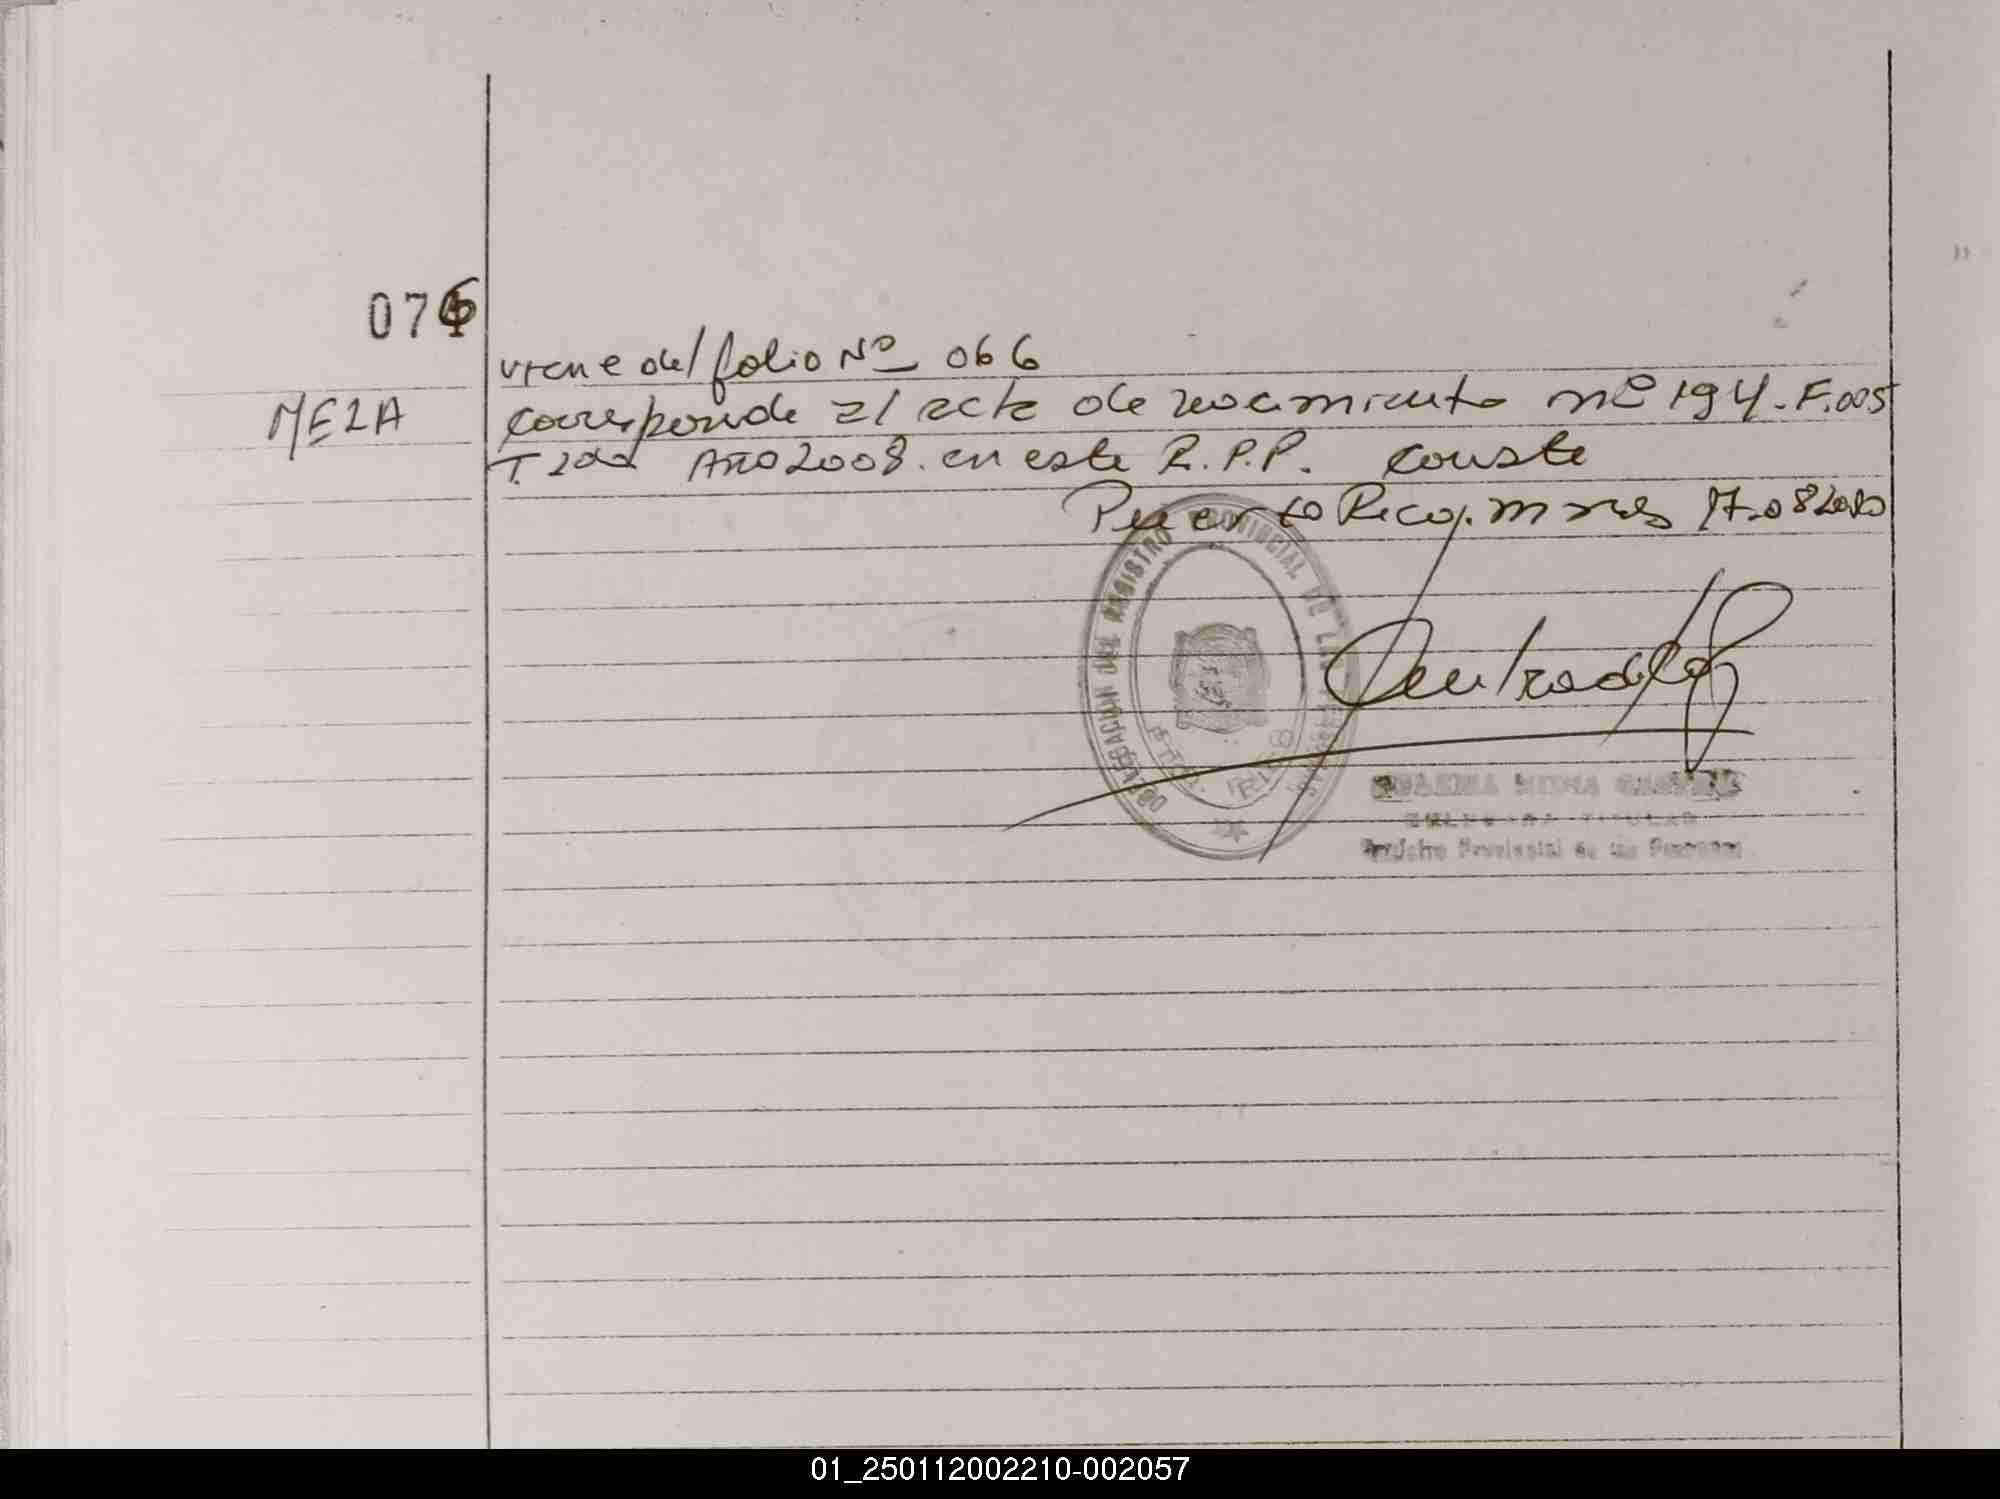 076
viene del folio Nº 066
MEZA
corresponde al acta de nacimiento nº 194. F.005
T. 200 AÑO 2008. en este R.P.P. conste
Puerto Rico, Mnes 17-08-2010
DELEGACION DEL REGISTRO PROVINCIAL DE LAS
PTO. RICO
TITULAR
Registro Provincial de las Personas
01_250112002210-002057